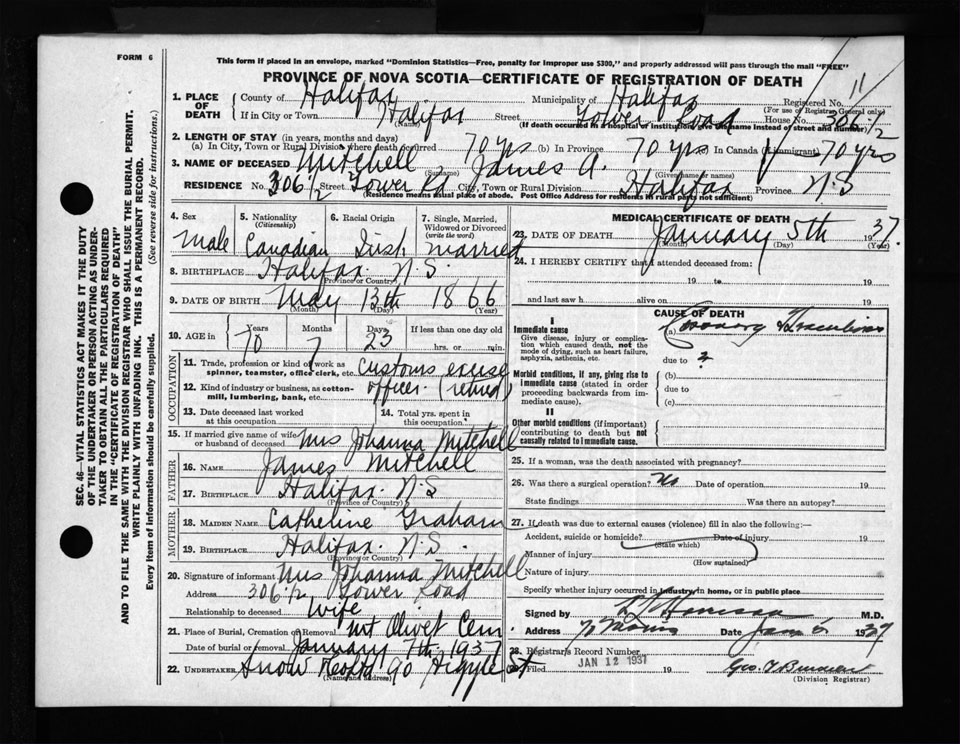 FORM 6
This form if placed in an envelope, marked "Dominion Statistics—Free, penalty for improper use $300," and properly addressed will pass through the mail "FREE"
PROVINCE OF NOVA SCOTIA—CERTIFICATE OF REGISTRATION OF DEATH
1. PLACE OF DEATH
County of Halifax Municipality of Halifax Registered No. 11
(For use of Registrar General only)
If in City or Town Halifax Street Tower Road House No. 306 1/2
(Name)
(If death occurred in a hospital or institution, give the name instead of street and number)
2. LENGTH OF STAY (in years, months and days)
(a) In City, Town or Rural Division where death occurred 70 yrs (b) In Province 70 yrs (c) In Canada (if immigrant) 70 yrs
3. NAME OF DECEASED Mitchell James A.
(Surname) (Given name or names)
RESIDENCE No. 306 1/2 Street Tower Rd City, Town or Rural Division Halifax Province N.S
(Residence means usual place of abode. Post Office Address for residents in rural parts not sufficient)
4. Sex
Male
5. Nationality
(Citizenship)
Canadian
6. Racial Origin
Irish
7. Single, Married, Widowed or Divorced
(write the word)
Married
8. BIRTHPLACE Halifax. N.S.
(Province or Country)
9. DATE OF BIRTH May 13th 1866
(Month) (Day) (Year)
10. AGE in Years Months Days If less than one day old
70 7 23 hrs. or min.
OCCUPATION
11. Trade, profession or kind of work as spinner, teamster, office clerk, etc. Customs excise
12. Kind of industry or business, as cotton-mill, lumbering, bank, etc. officer. (retired)
13. Date deceased last worked at this occupation
14. Total yrs. spent in this occupation
15. If married give name of wife or husband of deceased Mrs Johanna Mitchell
FATHER
16. NAME James Mitchell
17. BIRTHPLACE Halifax. N.S
(Province or Country)
MOTHER
18. MAIDEN NAME Catherine Graham
19. BIRTHPLACE Halifax. N.S.
(Province or Country)
20. Signature of informant Mrs Johanna Mitchell
Address 306 1/2 Tower Road
Relationship to deceased Wife
21. Place of Burial, Cremation or Removal Mt Olivet Cem.
Date of burial or removal January 7th 1937
22. UNDERTAKER Snow 90 Argyle st
(Name and Address)
MEDICAL CERTIFICATE OF DEATH
23. DATE OF DEATH January 5th 1937.
(Month) (Day) (Year)
24. I HEREBY CERTIFY that I attended deceased from:
19 to 19
and last saw h alive on 19
CAUSE OF DEATH
I
Immediate cause
Give disease, injury or complication which caused death, not the mode of dying, such as heart failure, asphyxia, asthenia, etc.
(a) Coronary Thrombosis
due to ?
Morbid conditions, if any, giving rise to immediate cause (stated in order proceeding backwards from immediate cause).
(b)
due to
(c)
II
Other morbid conditions (if important) contributing to death but not causally related to immediate cause.
25. If a woman, was the death associated with pregnancy?
26. Was there a surgical operation? No Date of operation 19
State findings Was there an autopsy?
27. If death was due to external causes (violence) fill in also the following:—
Accident, suicide or homicide? Date of injury 19
(State which)
Manner of injury
(How sustained)
Nature of injury
Specify whether injury occurred in industry, in home, or in public place
Signed by M.D.
Address Date Jan 6 1937
28. Registrar's Record Number
29. Filed JAN 12 1937 19
(Division Registrar)
SEC. 46—VITAL STATISTICS ACT MAKES IT THE DUTY
OF THE UNDERTAKER OR PERSON ACTING AS UNDER-
TAKER TO OBTAIN ALL THE PARTICULARS REQUIRED
IN THE "CERTIFICATE OF REGISTRATION OF DEATH"
AND TO FILE THE SAME WITH THE DIVISION REGISTRAR WHO SHALL ISSUE THE BURIAL PERMIT.
WRITE PLAINLY WITH UNFADING INK. THIS IS A PERMANENT RECORD.
Every item of information should be carefully supplied. (See reverse side for instructions.)